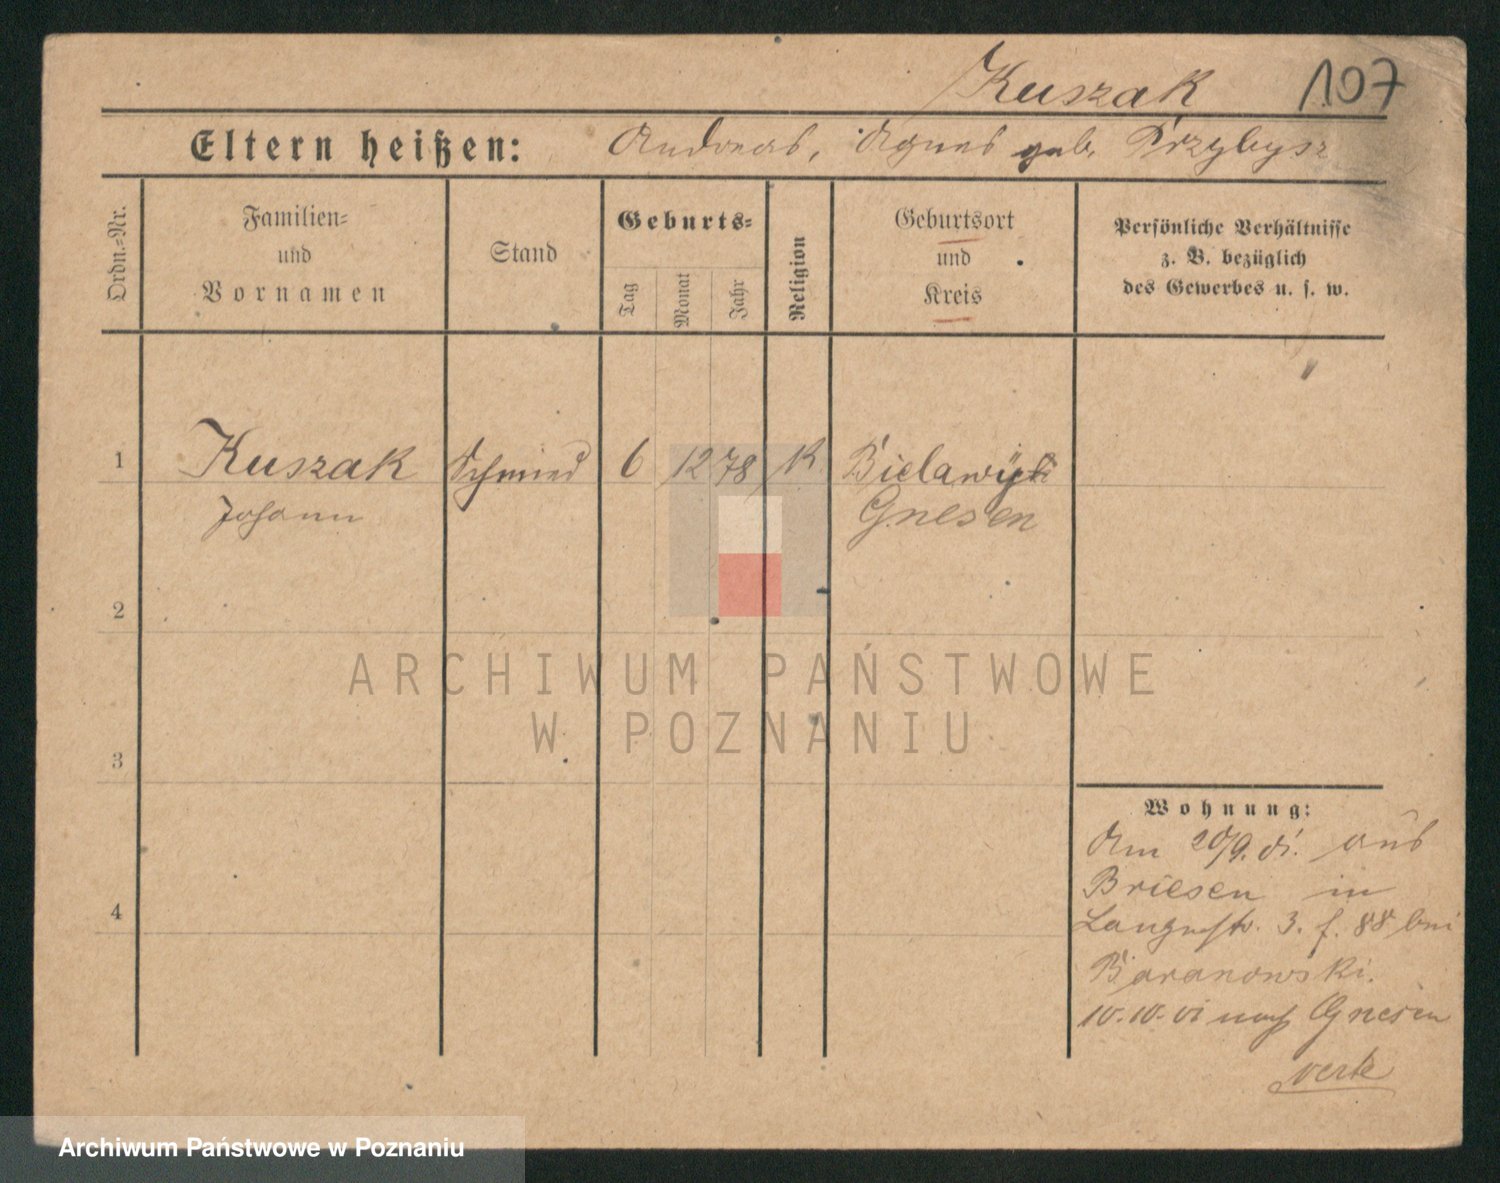 Kuszak 107
Eltern heißen: Andreas, Agnes geb. Przybysz
Ordn.=Nr.
Familien=
und
Vornamen
Stand
Geburts=
Tag
Monat
Jahr
Religion
Geburtsort
und
Kreis
Persönliche Verhältnisse
z. B. bezüglich
des Gewerbes u. s. w.
1 Kuszak Schmied 6 12 78 K.
Johann Gnesen
2
3
4
Wohnung:
Am 20/9. 01. aus
Briesen in
Langestr. 3. f. 88 bei
Baranowski.
10.10.01 nach Gnesen
ARCHIWUM PAŃSTWOWE
W POZNANIU
Archiwum Państwowe w Poznaniu